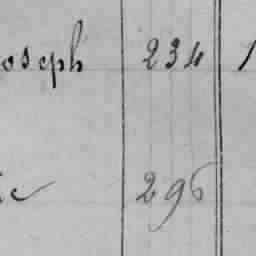 oseph 234 1
c 296